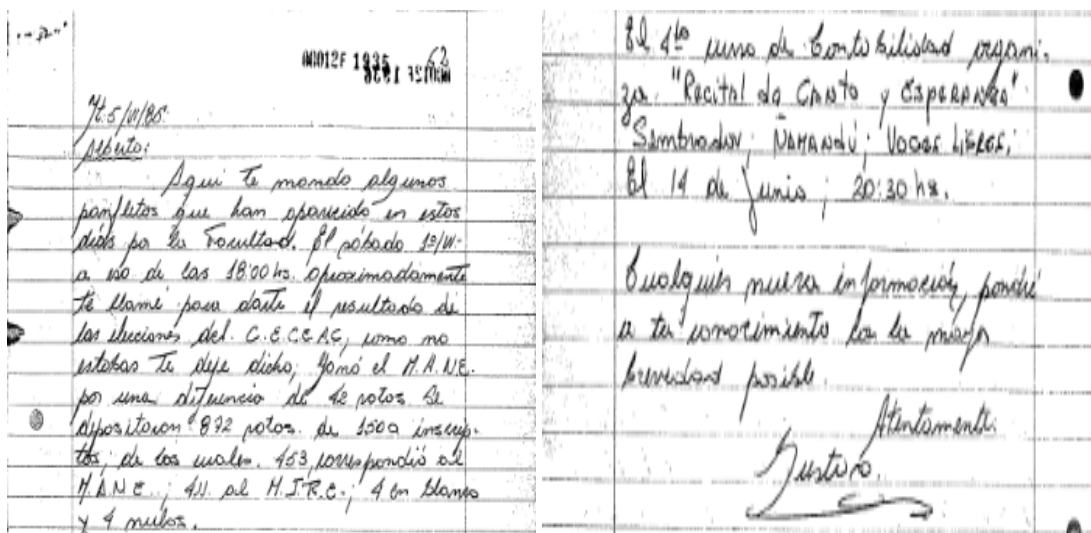 00012F 1835
62
It. 5/VI/85.
Alberto:
Aqui te mando algunos
panfletos que han aparecido en estos
días por la Facultad. El sábado 1º/VI-
a eso de las 18:00 hs. aproximadamente
te llamé para darte el resultado de
las elecciones del C.E.C.E.A.C, como no
estabas te deje dicho; Ganó el M.A.NE.
por una diferencia de 42 votos. Se
depositaron 872 votos. de 1500 inscrip-
tos, de los cuales. 453 correspondió al
M.A.N.E.; 411 al M.I.R.E.; 4 en blanco
y 4 nulos.
El 4to curso de Contabilidad organi-
za "Recital de Canto y Esperanza"
Sembrador; Ñamandú; Voces Libres;
El 14 de Junio; 20:30 hs.
Cualquier nueva información, pondré
a tu conocimiento con la mayor
brevedad posible.
Atentamente.
Gustavo.